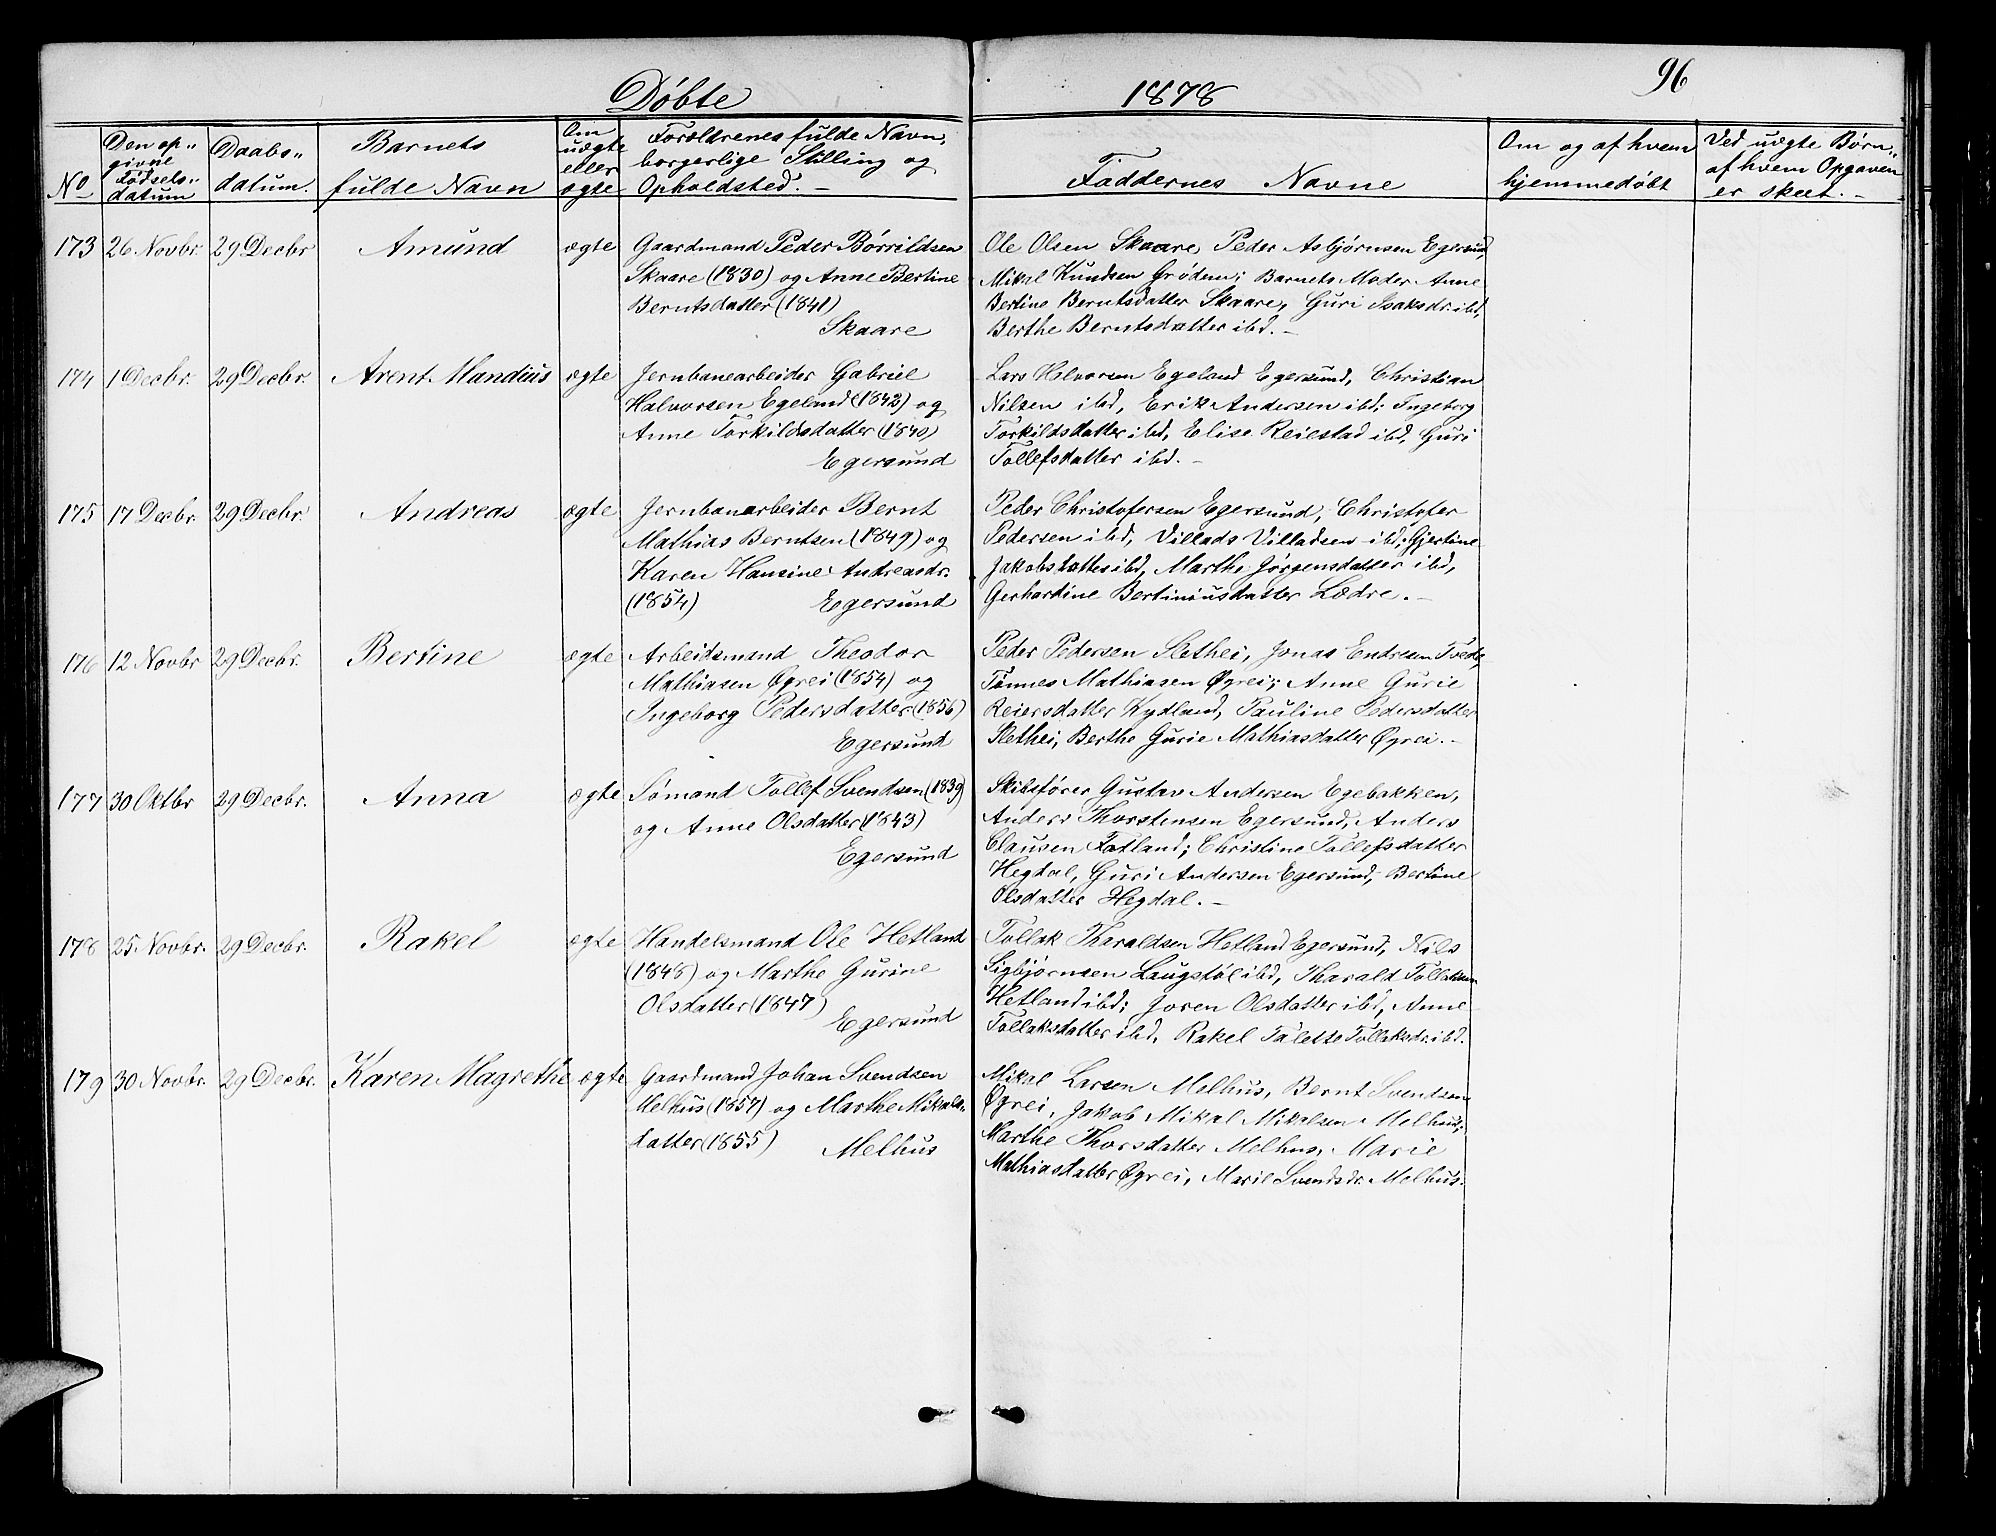 Døbte
1878
96
No
Den op„
givne
Fødsels„
datum
Daabs„
datum.
Barnets
fulde Navn
Om
uægte
eller
ægte
Forældrenes fulde Navn,
borgerlige Stilling og
Opholdsted. —
Faddernes Navne
Om og af hvem
hjemmedøbt
Ved uægte Børn„
af hvem Opgaven
er skeet. —
173 26 Novbr. 29 Decbr Amund ægte
Gaardmand Peder Børrildsen
Skaare (1830) og Anne Bertine
Berntsdatter (1841)
Skaare
Ole Olsen Skaare, Peder Asbjørnsen Egersund,
Mikal Knudsen Grødem; Barnets Moder Anne
Bertine Berntsdatter Skaare, Guri Isaksdr. ibd,
Berthe Berntsdatter ibd. —
174 1 Decbr. 29 Decbr. Arent Mandius ægte
Jernbanearbeider Gabriel
Halvorsen Egeland (1842) og
Anne Torkildsdatter (1840)
Egersund
Lars Halvorsen Egeland Egersund, Christian
Nilsen ibd, Erik Andersen ibd; Ingeborg
Torkildsdatter ibd, Elise Reiestad ibd, Guri
Tollefsdatter ibd. —
175 17 Decbr. 29 Decbr. Andreas ægte
Jernbanarbeider Bernt
Mathias Berntsen (1849) og
Karen Hansine Andreasdr.
(1854) Egersund
Peder Christofersen Egersund, Christofer
Pedersen ibd, Villads Villadsen ibd; Gjertine
Jakobsdatter ibd, Marthe Jørgensdatter ibd,
Gerhardine Bertiniusdatter Lædre. —
176 12 Novbr 29 Decbr. Bertine ægte
Arbeidsmand Theodor
Mathiasen Øgrei (1854) og
Ingeborg Pedersdatter (1856)
Egersund
Peder Pedersen Slethei, Jonas Endresen Tvede,
Tønnes Mathiasen Øgrei; Anne Gurie
Reiersdatter Kydland, Pauline Pedersdatter
Slethei, Berthe Gurie Mathiasdatter Øgrei. —
177 30 Oktbr 29 Decbr. Anna ægte
Sømand Tollef Svendsen (1839)
og Anne Olsdatter (1843)
Egersund
Skibsfører Gustav Andersen Egebakken,
Anders Thorstensen Egersund, Anders
Clausen Fotland; Christine Tollefsdatter
Hegdal, Guri Andersen Egersund, Bertine
Olsdatter Hegdal. —
178 25 Novbr. 29 Decbr. Rakel ægte
Handelsmand Ole Hetland
(1848) og Marthe Gurine
Olsdatter (1847)
Egersund
Tollak Tharaldsen Hetland Egersund, Nils
Sigbjørnsen Laugstøl ibd, Tharald Tollaksen
Hetland ibd; Joren Olsdatter ibd, Anne
Tollaksdatter ibd, Rakel Talette Tollaksdr. ibd.
179 30 Novbr. 29 Decbr. Karen Magrethe ægte
Gaardmand Johan Svendsen
Melhus (1857) og Marthe Mikals„
datter (1855)
Melhus
Mikal Larsen Melhus, Bernt Svendsen
Øgrei, Jakob Mikal Mikalsen Melhus;
Marthe Thorsdatter Melhus, Marie
Mathiasdatter Øgrei, Marie Svendsdr. Melhus.